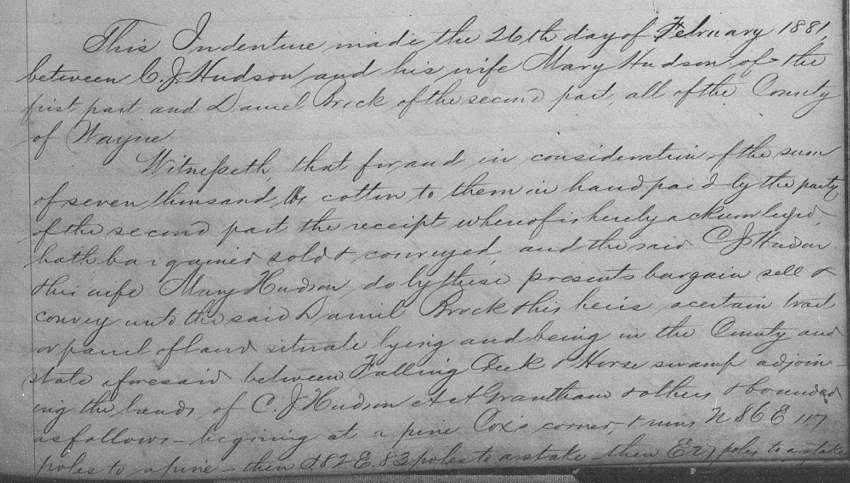 This Indenture made the 26th day of February 1881,
between C. J. Hudson, and his wife Mary Hudson of the
first part and Daniel Brock of the second part, all of the County
of Wayne
Witnesseth, that for, and in consideration of the sum
of seven thousand, lbs cotton to them in hand paid by the party
of the second part the receipt whereof is hereby acknowledged,
hath bargained sold & conveyed, and the said C J Hudson
& his wife Mary Hudson, do by these presents bargain sell &
convey unto the said Daniel Brock & his heirs a certain tract
or parcel of land situate lying and being in the County and
state aforesaid between Falling Creek & Horse swamp adjoin-
ing the lands of C. J. Hudson Grantham & others & bounded
as follows - begining at a pine Cox's corner, & runs N 86 E 117
poles to a pine - then S 82 E. 83 poles to a stake - then E 27 poles to a stake